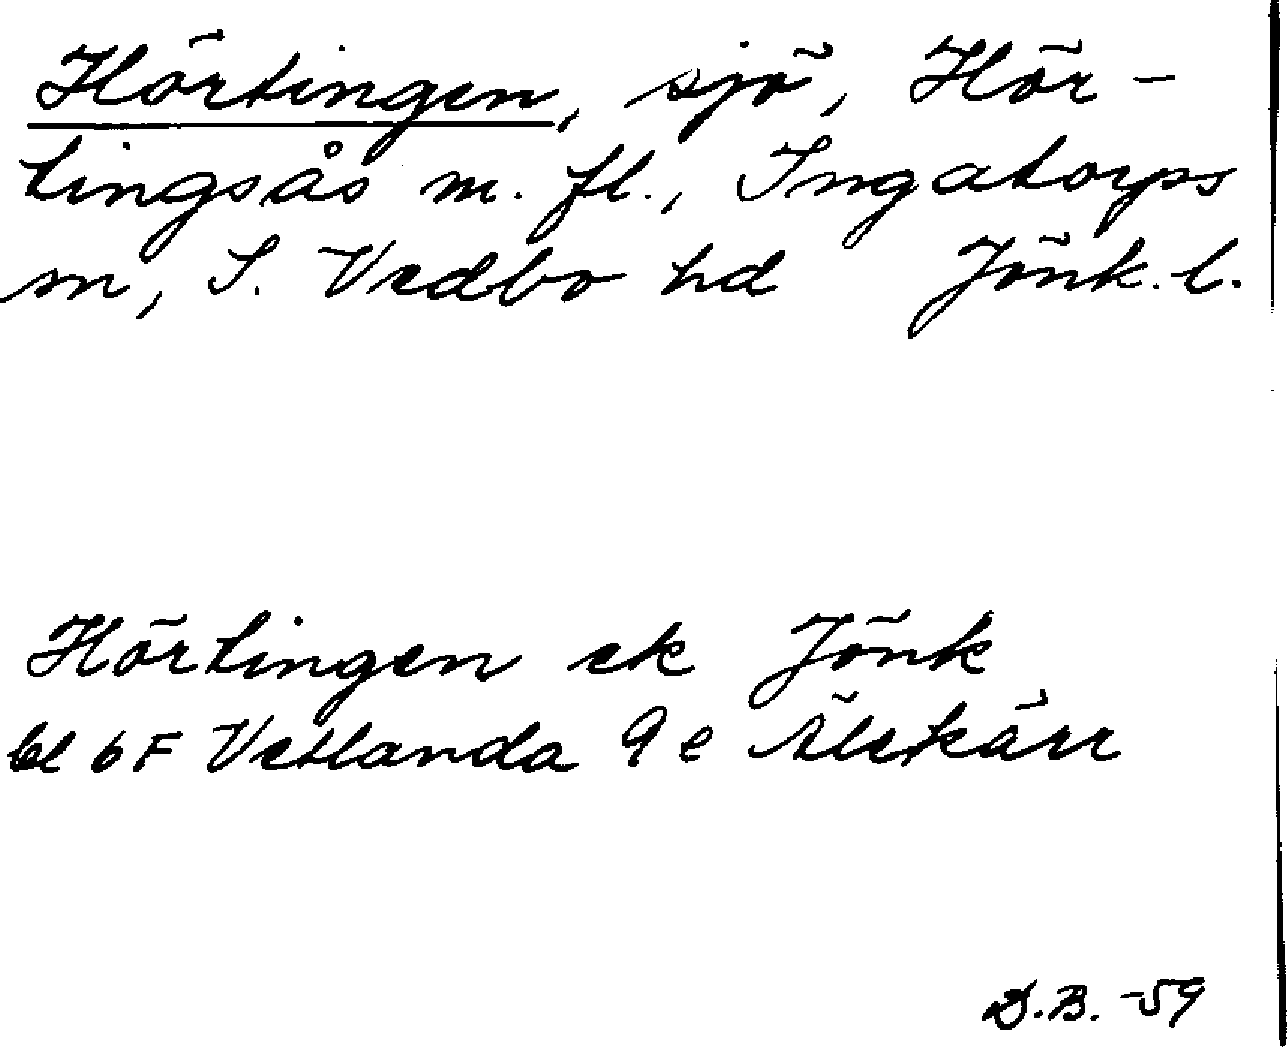 Hörtingen, sjö, Hör-
tingsås m. fl., Ingatorps
sn, S. Vedbo hd Jönk. l.
Hörtingen ek Jönk
bl 6 F Vetlanda 9 e Älekärr
D.B. -59